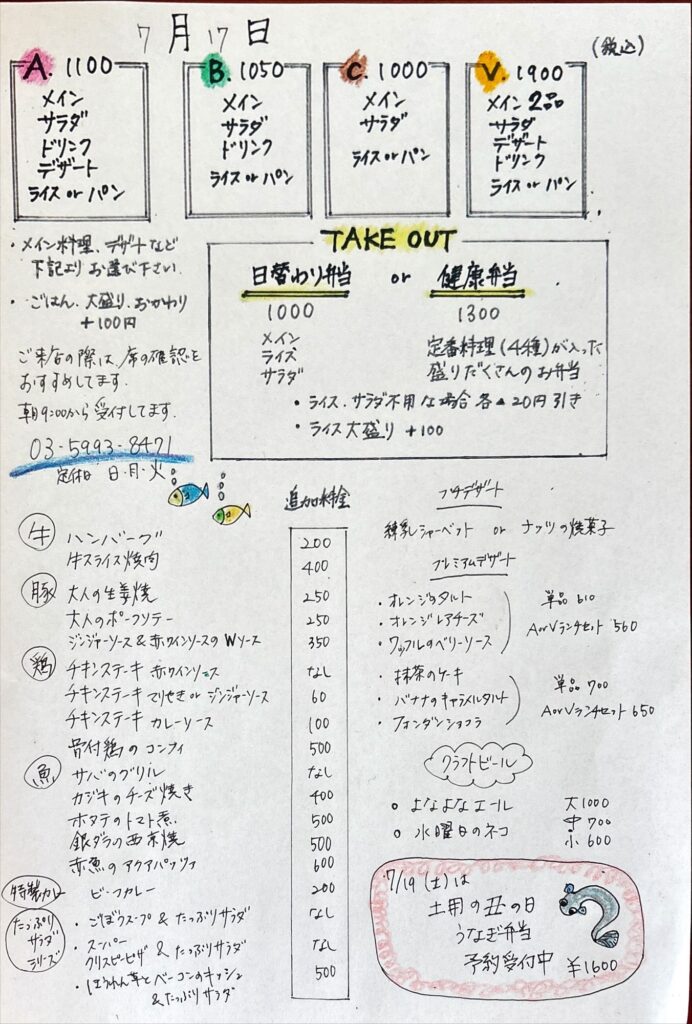 7月17日
(税込)
A. 1100
メイン
サラダ
ドリンク
デザート
ライス or パン
B. 1050
メイン
サラダ
ドリンク
ライス or パン
C. 1000
メイン
サラダ
ライス or パン
V. 1900
メイン 2品
サラダ
デザート
ドリンク
ライス or パン
・メイン料理、デザートなど
下記よりお選び下さい.
・ごはん、大盛り、おかわり
+100円
ご来店の際は、席の確認を
おすすめしてます.
朝9:00から受付してます.
03-5993-8471
定休日 日・月・火
TAKE OUT
日替わり弁当 or 健康弁当
1000
メイン
ライス
サラダ
1300
定番料理(4種)が入った
盛りだくさんのお弁当
・ライス、サラダ不用な場合 各▲20円引き
・ライス大盛り +100
追加料金
牛 ハンバーグ 200
牛スライス焼肉 400
豚 大人の生姜焼 250
大人のポークソテー 250
ジンジャーソース&赤ワインソースのWソース 350
鶏 チキンステーキ 赤ワインソース なし
チキンステーキ てりやき or ジンジャーソース 60
チキンステーキ カレーソース 100
骨付鶏のコンフィ 500
魚 サバのグリル なし
カジキのチーズ焼き 400
ホタテのトマト煮 500
銀ダラの西京焼 500
赤魚のアクアパッツァ 600
特製カレー ビーフカレー 200
たっぷりサラダシリーズ
・ごぼうスープ&たっぷりサラダ なし
・スーパークリスピーピザ &たっぷりサラダ なし
・ほうれん草とベーコンのキッシュ
&たっぷりサラダ 500
プチデザート
練乳シャーベット or ナッツの焼菓子
プレミアムデザート
・オレンジのタルト
・オレンジレアチーズ
・ワッフルのベリーソース
単品 610
AorVランチセット 560
・抹茶のケーキ
・バナナのキャラメルタルト
・フォンダンショコラ
単品 700
AorVランチセット 650
クラフトビール
○ よなよなエール
○ 水曜日のネコ
大1000
中700
小600
7/19(土)は
土用の丑の日
うなぎ弁当
予約受付中 ¥1600